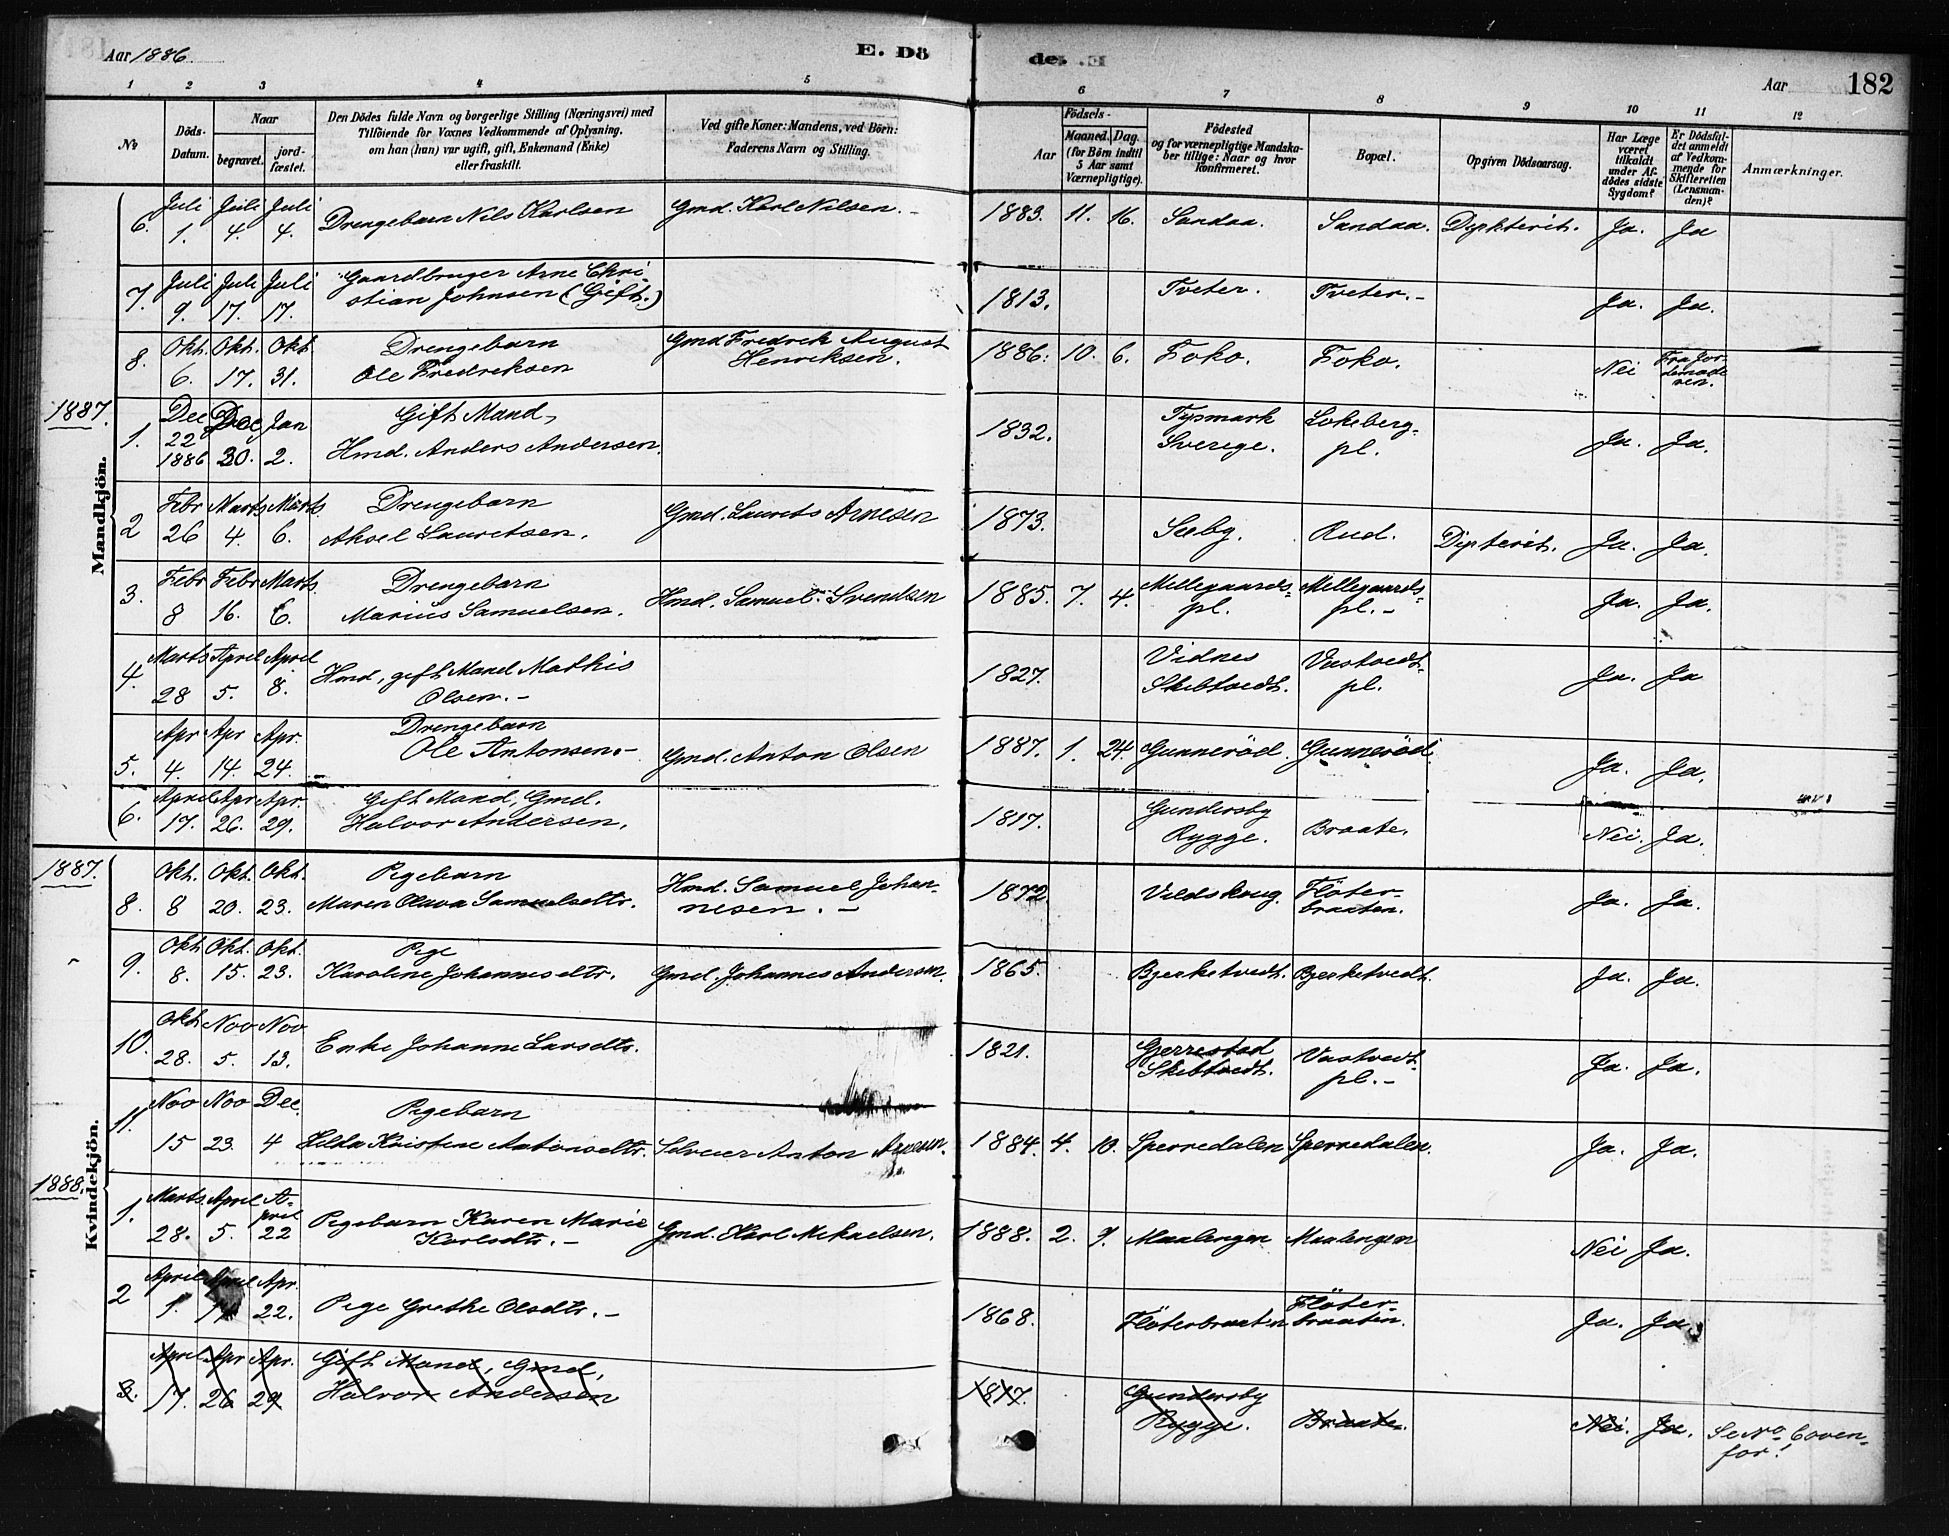 Aar 1886. E. Dö
de. E Aar 182
1 2 3 4 5 6 7 8 9 10 11 12
No
Döds-Datum.
Naar
begravet.
jord-fæstet.
Den Dödes fulde Navn og borgerlige Stilling (Næringsvei) med
Tilföiende for Voxnes Vedkommende af Oplysning.
om han (hun) var ugift, gift, Enkemand (Enke)
eller fraskilt.
Ved gifte Koner: Mandens, ved Börn:
Faderens Navn og Stilling.
Födsels-
Aar
Maaned. Dag.
(for Börn indtil
5 Aar samt
Værnepligtige).
Födested
og for værnepligtige Mandska-
ber tillige: Naar og hvor
konfirmeret.
Bopæl.
Opgiven Dödsaarsag.
Har Læge
været
tilkaldt
under Af-
dödes sidste
Sygdom?
Er Dödsfal-
det anmeldt
af Vedkom-
mende for
Skifteretten
(Lensman-
den)?
Anmærkninger.
Mandkjön.
6. Juli 1. Juli 4. Juli 4. Drengebarn Nils Karlsen Gmd. Karl Nilsen. - 1883. 11. 16. Sandaa. Sandaa. Diphterit. Ja. Ja
7. Juli 9. Juli 17. Juli 17. Gaardbruger Arne Chri-
stian Johnsen (Gift.) 1813. Tveter. Tveter. - Ja. Ja.
8. Okt. 6. Okt. 17. Okt. 31. Drengebarn
Ole Fredreksen Gmd Fredrek August
Henriksen. 1886. 10. 6. Foko. Foko. Nei Fra Jor-
demode
ren.
1887.
1. Dec 22 1886 Dec 30. Jan 2. Gift Mand,
Hmd. Anders Andersen. 1832. Tysmark
Sverege. Lokeberg-
pl. Ja. Ja.
2 Febr 26 Marts 4. Marts 6. Drengebarn
Aksel Lauretsen. Gmd. Laurets Arnesen 1873. Sæby. Rud. Dipterit. Ja. Ja.
3. Febr 8 Febr 16. Marts 6. Drengebarn
Marius Samuelsen. Hmd. Samuel Svendsen 1885. 7. 4. Millegaards-
pl. Millegaards-
pl. - Ja. Ja.
4. Marts 28 April 5. April 8. Hmd, gift Mand Mathis
Olsen. - 1827. Vidnes
Skibtvedt. Vastvedt-
pl. Ja. Ja
5. Apr 4. Apr 14. Apr. 24. Drengebarn
Ole Antonsen. - Gmd. Anton Olsen 1887. 1. 24. Gunneröd. Gunneröd. Ja. Ja.
6. April 17. Apr 26. Apr. 29. Gift Mand, Gmd.
Halvor Andersen. 1817. Gundersby
Rygge. Braate. Nei. Ja.
Kvindekjön.
1887.
8. Okt. 8 Okt. 20. Okt. 23. Pigebarn
Maren Olava Samuelsdtr. Hmd. Samuel Johan-
nesen. - 1872 Vildskoug. Flöter-
braaten. Ja. Ja.
9. Okt 8. Okt. 15. Okt. 23. Pige
Karoline Johannesdtr. Gmd. Johannes Andersen. 1865. Bjerketvedt. Bjerketvedt. Ja. Ja.
10. Okt 28. Nov 5. Nov 13. Enke Johanne Larsdtr. 1821. Gjerrestad
Skibtvedt. Vastvedt-
pl. - Ja. Ja.
11. Nov 15 Nov 23. Dec. 4 Pigebarn
Hilda Kristine Antonsdtr. Selveier Anton Arnesen. 1884. 4. 10. Sperredalen Sperredalen. Ja. Ja.
1888.
1. Marts 28. April 5. A-
pril 22 Pigebarn Karen Marie
Karlsdtr. - Gmd. Karl Mikaelsen. 1888. 2. 9. Maalengen Maalengen Nei Ja.
2 April 1. April Apr. 22. Pige Grethe Olsdtr. - 1868. Flöterbraaten Flöter-
braaten. Ja. Ja.
3. April 17. Apr 26 Apr. 29 Gift Mand, Gmd,
Halvor Andersen 1817. Gundersby
Rygge. Braate. Nei. Ja. Se No 6 oven-
for!